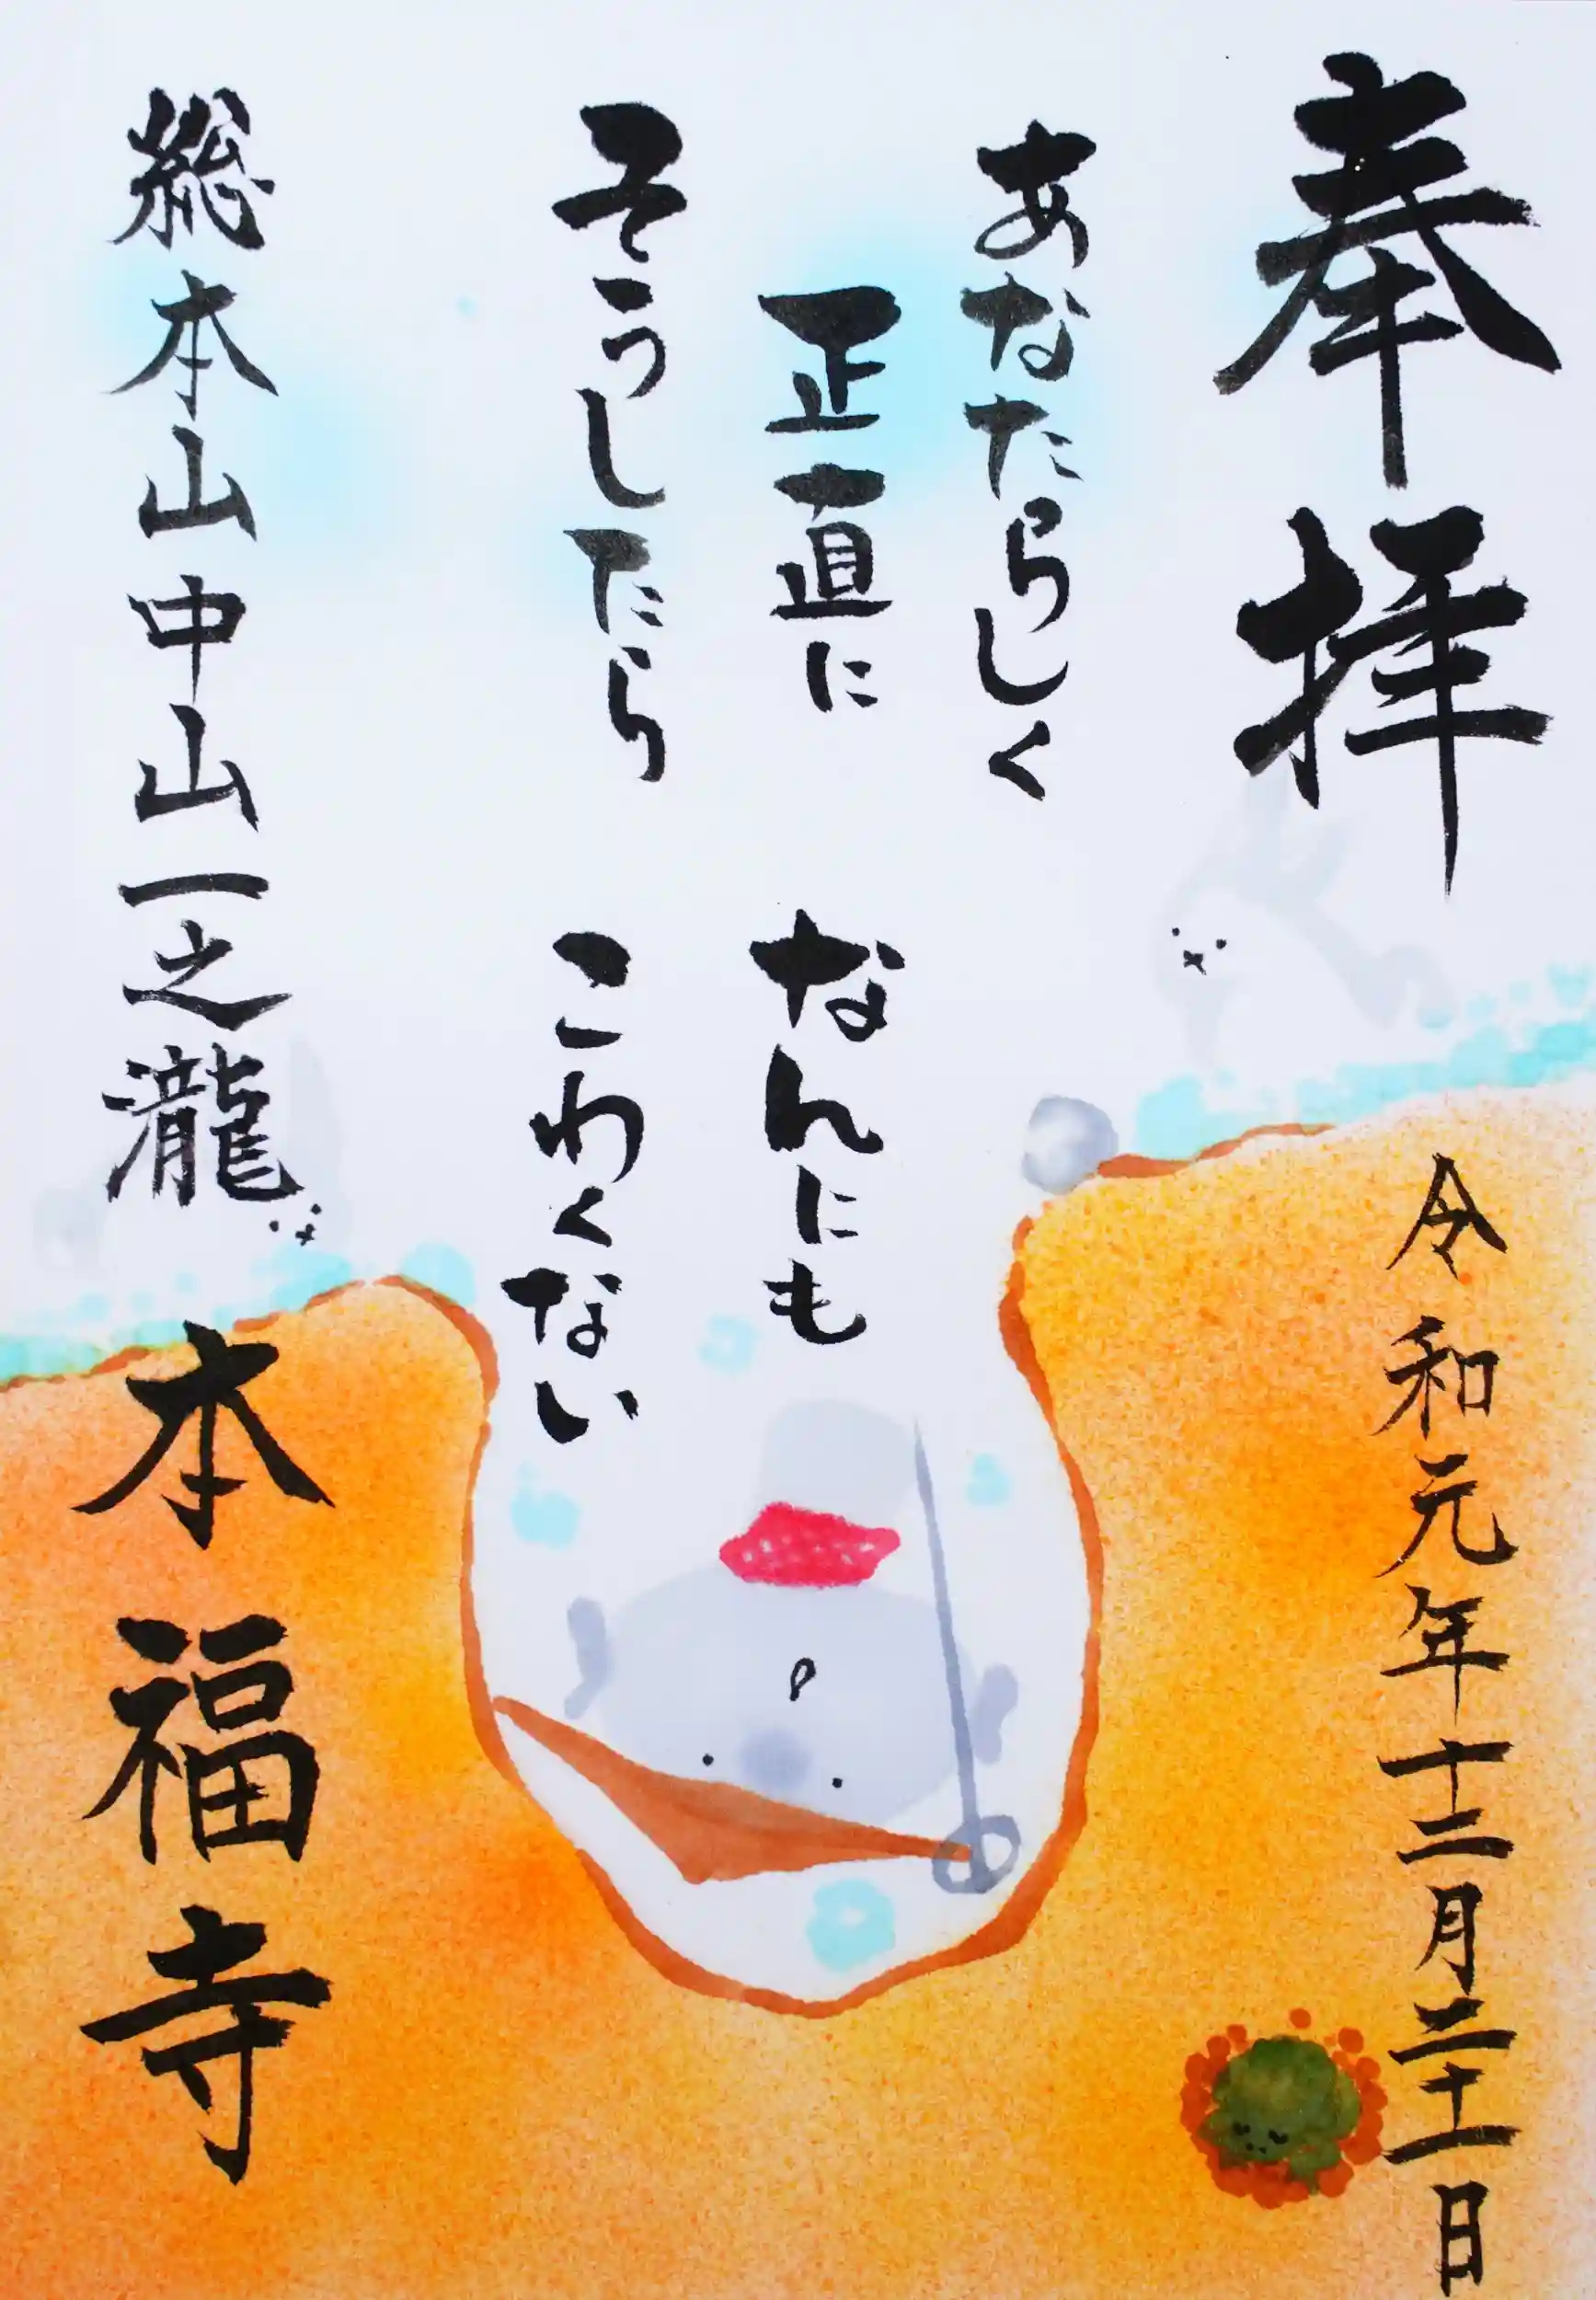 奉拝
令和元年十二月二十一日
あなたらしく
正直に
なんにも
そうしたら
こわくない
総本山中山一之瀧
本福寺